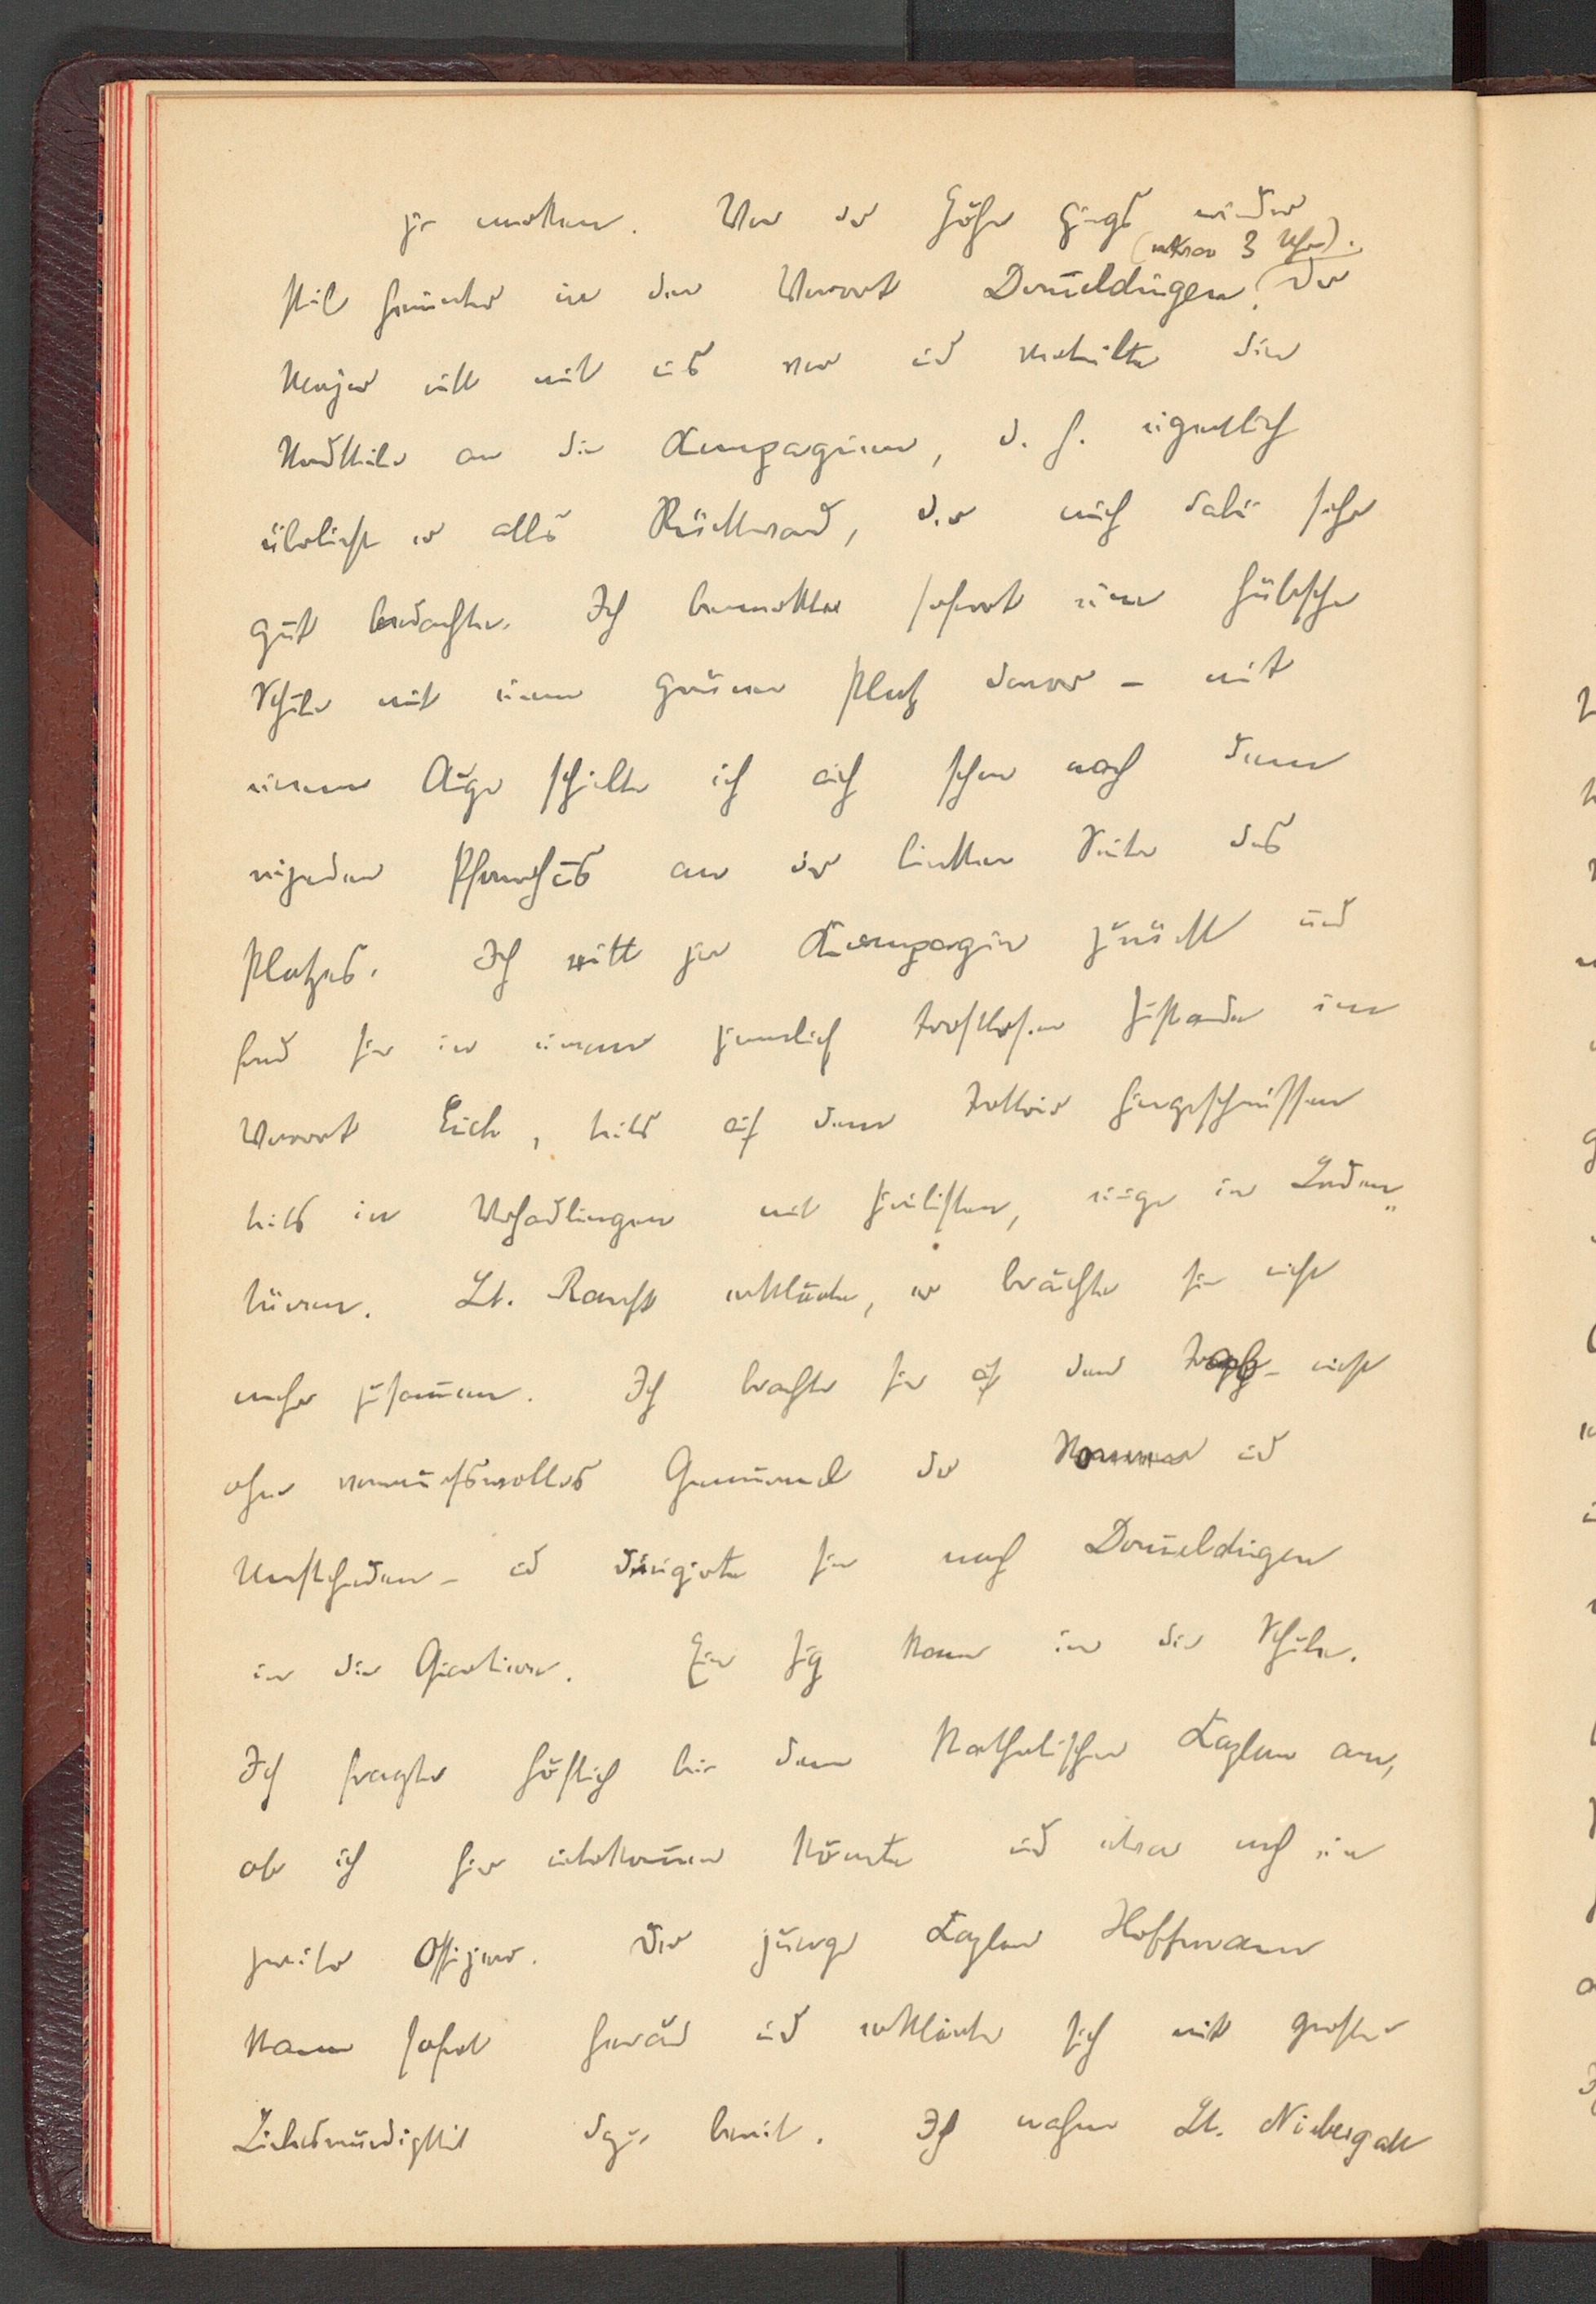 zu merken. Von der Höhe gings wieder
(etwa 3 Uhr).
steil hinunter in den Vorort Dom̅eldingen. Der
Major ritt mit uns vor und verteilte die
Stadtteile an die Kompagnien, d. h. eigentlich
überließ er alles Rückward, der mich dabei sehr
gut bedachte. Ich bemerkte sofort eine hübsche
Schule mit einem grünen Platz davor – mit
einem Auge schielte ich auch schon nach dem
reizenden Pfarrhaus an der linken Seite des
Platzes. Ich ritt zur Kompagnie zurück und
fand sie in einem ziemlich trostlosen Zustande im
Vorort Eich, teils auf dem Trottoir hingeschmissen
teils in Verhandlungen mit Zivilisten, einige in Laden„
türen. Lt. Ranft erklärte, er brächte sie nicht
mehr zusam̅en. Ich brachte sie auf den Trapp – nicht
ohne vorwurfsvolles Gemurmel der
– und dirigierte sie nach Dom̅eldingen
in die Quartiere. Ein Zug kam in die Schule.
Ich fragte höflich bei dem katholischen Kaplan an,
ob ich hier unterkom̅en könnte und etwa noch ein
zweiter Offizier. Der junge Kaplan Hoffmann
kam sofort heraus und erklärte sich mit großer
Liebenswürdigkeit dazu bereit. Ich nahm Lt. Niebergall